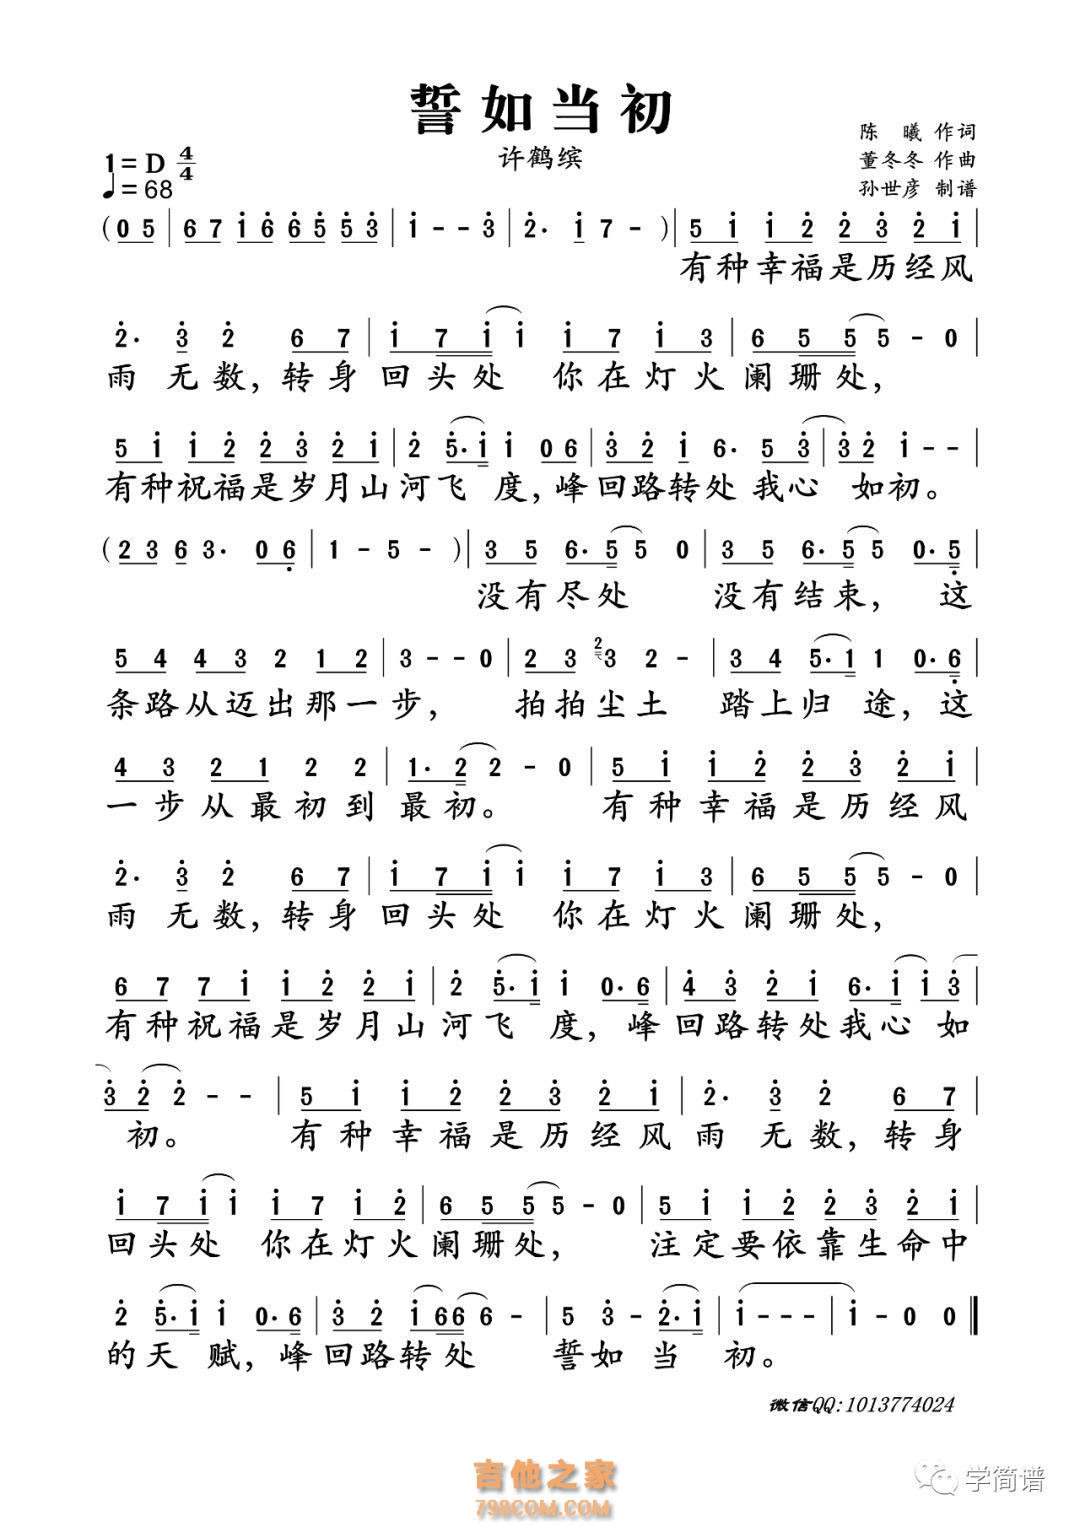 誓如当初
许鹤缤
陈 曦 作词
董冬冬 作曲
孙世彦 制谱
1=D 4/4
♩=68
(0 5 | 6 7 i 6 6 5 5 3 | i - - 3 | 2· i 7 - ) | 5 i i 2 2 3 2 i |
有种幸福是历经风
2· 3 2 6 7 | i 7 i i i 7 i 3 | 6 5 5 5 - 0 |
雨 无数,转身 回头处 你在灯火阑珊处,
5 i i 2 2 3 2 i | 2 5· i i 0 6 | 3 2 i 6· 5 3 | 3 2 i - - |
有种祝福是岁月山河飞 度,峰回路转处 我心 如初。
(2 3 6 3· 0 6 | 1 - 5 - ) | 3 5 6· 5 5 0 | 3 5 6· 5 5 0· 5 |
没有尽处 没有结束, 这
5 4 4 3 2 1 2 | 3 - - 0 | 2 3 2 3 2 - | 3 4 5· 1 1 0· 6 |
条路从迈出那一步, 拍拍尘土 踏上归 途,这
4 3 2 1 2 2 | 1· 2 2 - 0 | 5 i i 2 2 3 2 i |
一步从最初到 最初。 有种幸福是历经风
2· 3 2 6 7 | i 7 i i i 7 i 3 | 6 5 5 5 - 0 |
雨 无数,转身 回头处 你在灯火阑珊处,
6 7 7 i i 2 2 i | 2 5· i i 0· 6 | 4 3 2 i 6· i i 3 |
有种祝福是岁月山河飞 度, 峰回路转处我心 如
3 2 2 - - | 5 i i 2 2 3 2 i | 2· 3 2 6 7 |
初。 有种幸福是历经风雨 无数,转身
i 7 i i i 7 i 2 | 6 5 5 5 - 0 | 5 i i 2 2 3 2 i |
回头处 你在灯火阑珊处, 注定要依靠生命中
2 5· i i 0· 6 | 3 2 i 6 6 6 - | 5 3 - 2· i | i - - - | i - 0 0 ‖
的天 赋,峰回路转处 誓如 当 初。
微信QQ:1013774024
吉他之家
798COM.COM
学简谱